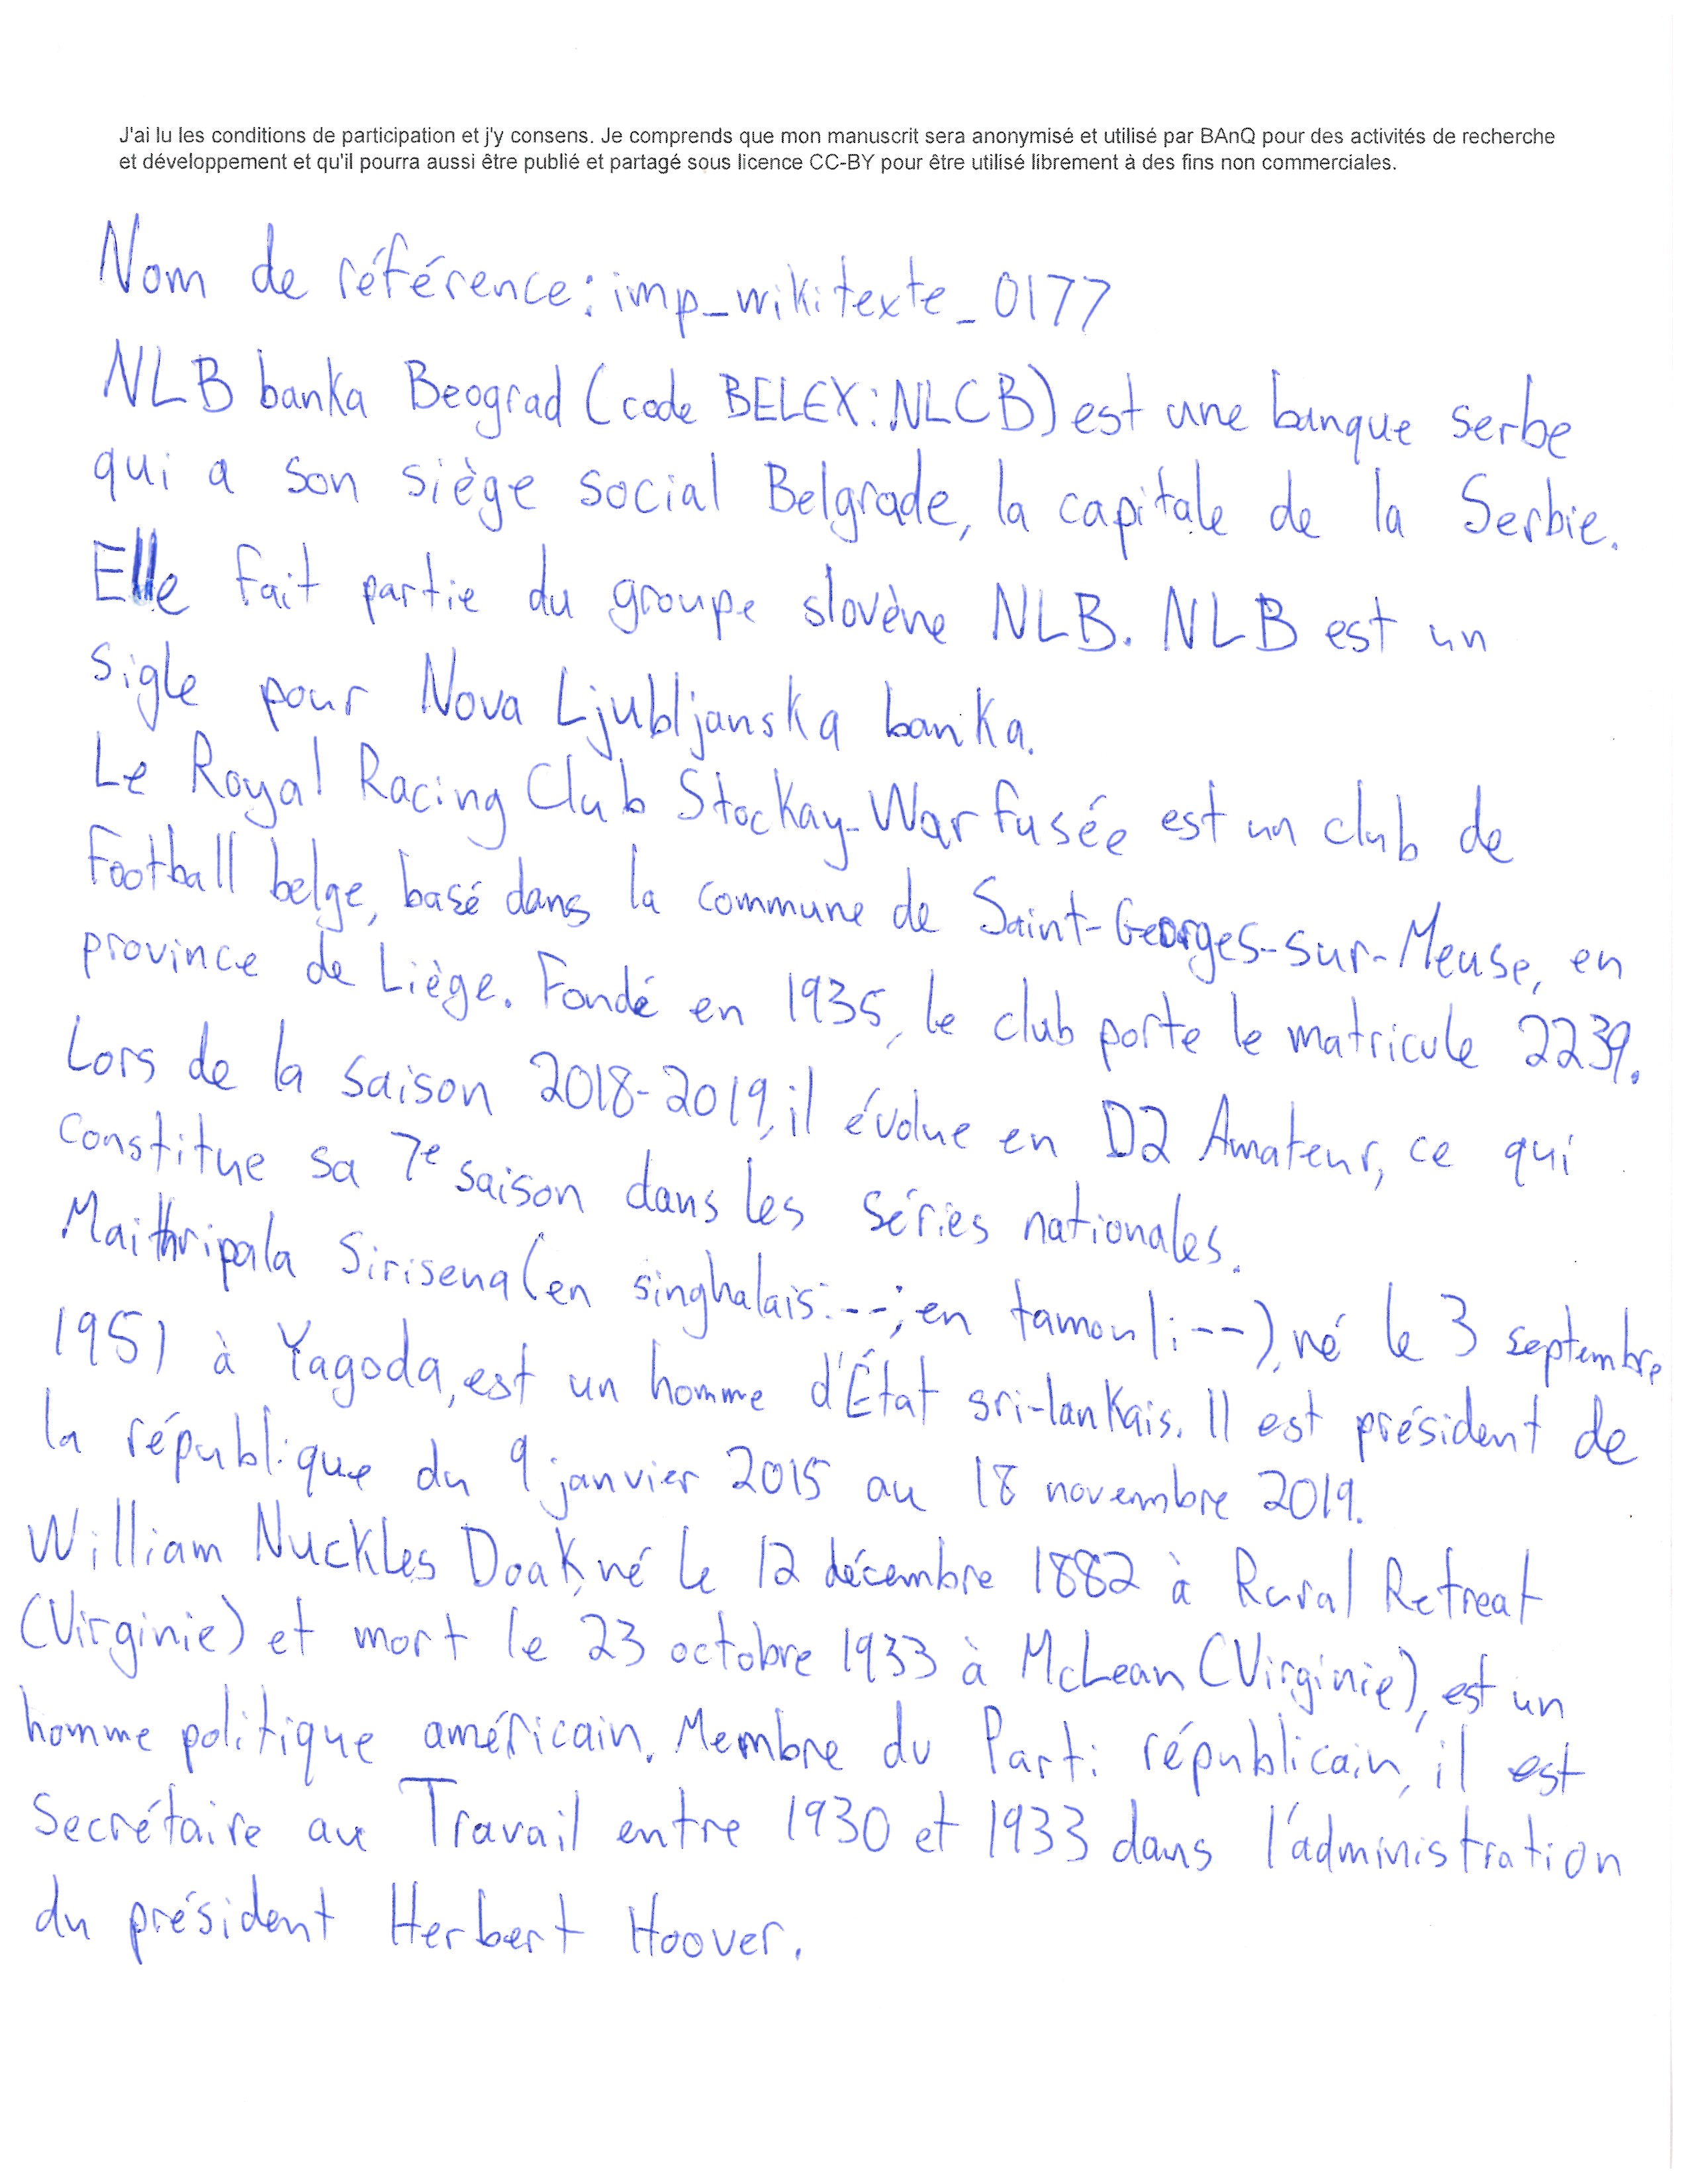 J'ai lu les conditions de participation et j'y consens. Je comprends que mon manuscrit sera anonymisé et utilisé par BAnQ pour des activités de recherche
et développement et qu'il pourra aussi être publié et partagé sous licence CC-BY pour être utilisé librement à des fins non commerciales.
Nom de référence: imp_wikitexte_0177
NLB banka Beograd (code BELEX: NLCB) est une banque serbe
qui a son siège social Belgrade, la capitale de la Serbie.
Elle fait partie du groupe slovène NLB. NLB est un
sigle pour Nova Ljubljanska banka.
Le Royal Racing Club Stockay-Warfusée est un club de
Football belge, basé dans la commune de Saint-Georges-sur-Meuse, en
province de Liège. Fondé en 1935, le club porte le matricule 2239.
Lors de la saison 2018-2019, il évolue en D2 Amateur, ce qui
constitue sa 7e saison dans les séries nationales.
Maithripala Sirisena (en singhalais: --; en tamoul: --), né le 3 septembre
1951 à Yagoda, est un homme d'État sri-lankais. Il est président de
la république du 9 janvier 2015 au 18 novembre 2019.
William Nuckles Doak, né le 12 décembre 1882 à Rural Retreat
(Virginie) et mort le 23 octobre 1933 à McLean (Virginie), est un
homme politique américain. Membre du Parti républicain, il est
Secrétaire au Travail entre 1930 et 1933 dans l'administration
du président Herbert Hoover.